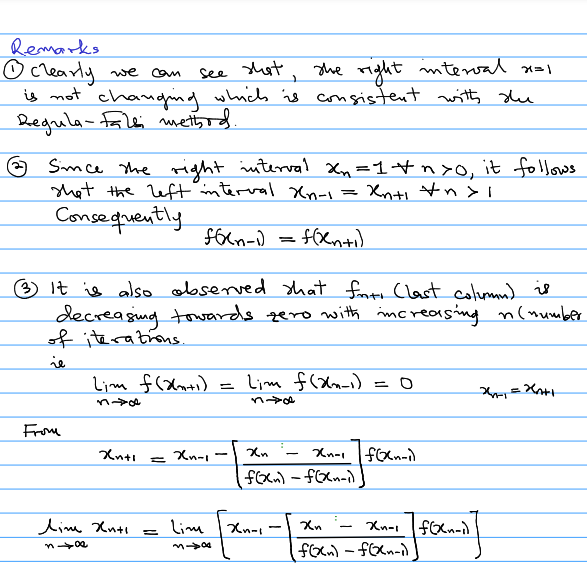 Remarks
① Clearly we can see that, the right interval x=1
is not changing which is consistent with the
Regula-Falsi method.
② Since the right interval xₙ = 1 ∀ n > 0, it follows
that the left interval xₙ₋₁ = xₙ₊₁ ∀ n > 1
Consequently
f(xₙ₋₁) = f(xₙ₊₁)
③ It is also observed that fₙ₊₁ (last column) is
decreasing towards zero with increasing n (number
of iterations.
ie
lim f(xₙ₊₁) = lim f(xₙ₋₁) = 0 xₙ₋₁ = xₙ₊₁
n→∞ n→∞
From
xₙ₊₁ = xₙ₋₁ - [ (xₙ - xₙ₋₁) / (f(xₙ) - f(xₙ₋₁)) ] f(xₙ₋₁)
lim xₙ₊₁ = lim [ xₙ₋₁ - [ (xₙ - xₙ₋₁) / (f(xₙ) - f(xₙ₋₁)) ] f(xₙ₋₁) ]
n→∞ n→∞